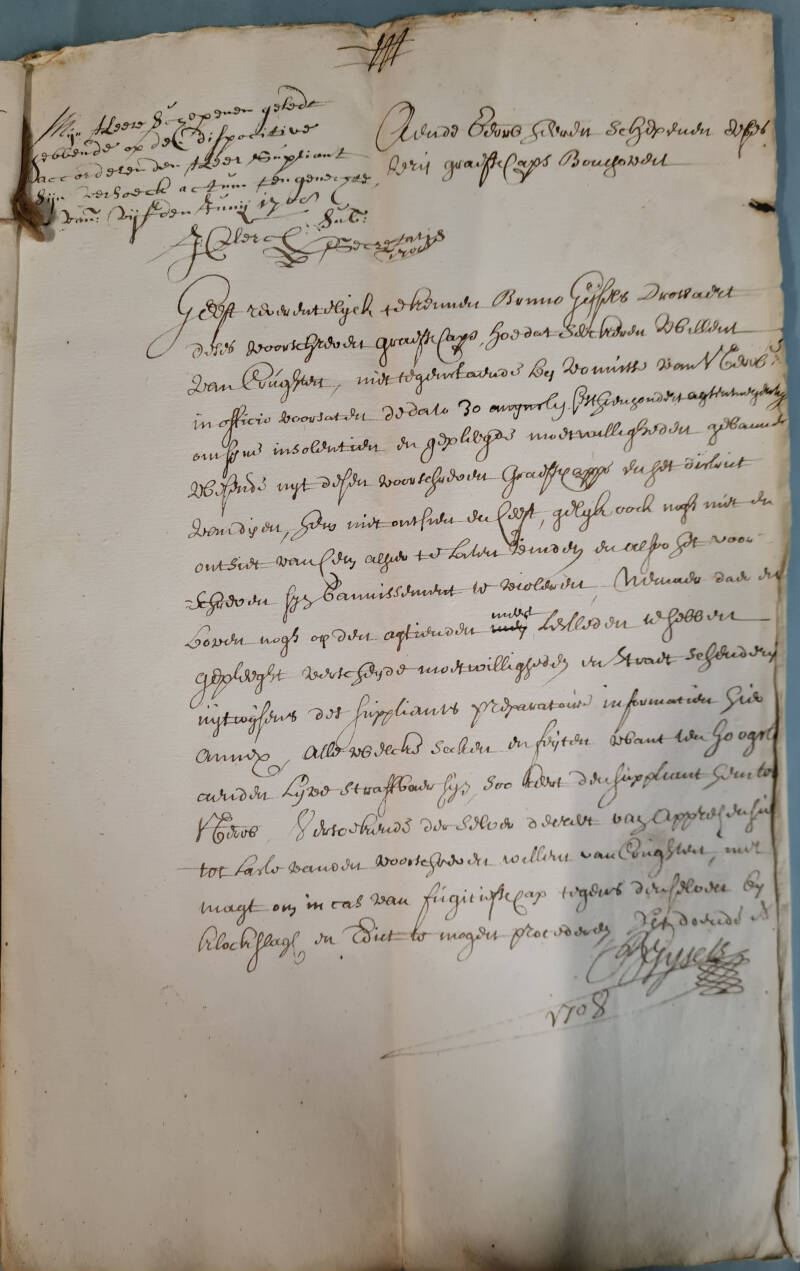 Mijn Heere Schepenen geledt
hebbende op desc dispositive
accorderen den Heer Supliant
sijn versoeck actum ten genechte
van vijfden Junij 1708
J Clercx Sub:
Secretaris
1708
Aende Eerw heeren Schepenen deses
vrij graeffscaps Bouchovent
Geeft reverentelijck te kennen Bruno Gijsels Drossaert
deses voorschreven graeffscaps, hoe dat seeckeren Willem
van Crughten, niettegenstaende bij vonnisse van VEerw:
in officio voorsaten de dato 30 augusty sesthienhondert achtentnegentig
om syne insolentien en gepleegde moetwilligheden gebannen
wesende uyt desen voorschreven Graeffscappe en het district
van dijen, hem niet onthien en heeft, gelijck oock nogh niet en
ontsiet van hem alhier te laten vinden en alsoo het voor
schreven syn bannissement te violeren, Nemaer daer en
boven nogh op den agtienden meert lestleden te hebben
gepleeght verscheyde moetwilligheden en straet schendery
uytwysens des suppliants preparatoire informatien hier
annex, alle welcke saken en feyten want ten hoogsten
aen den lyve straffbaer syn, soo keert den suppliant hem tot
VEerw. Versoekende der selver decreet van apprehensie
tot laste van den voorschreven willem van Crughten, met
magt om in cas van fugitiefscap tegens den selven by
klockslagh en Edict te mogen procederen Dit doende &
BGysels
1708